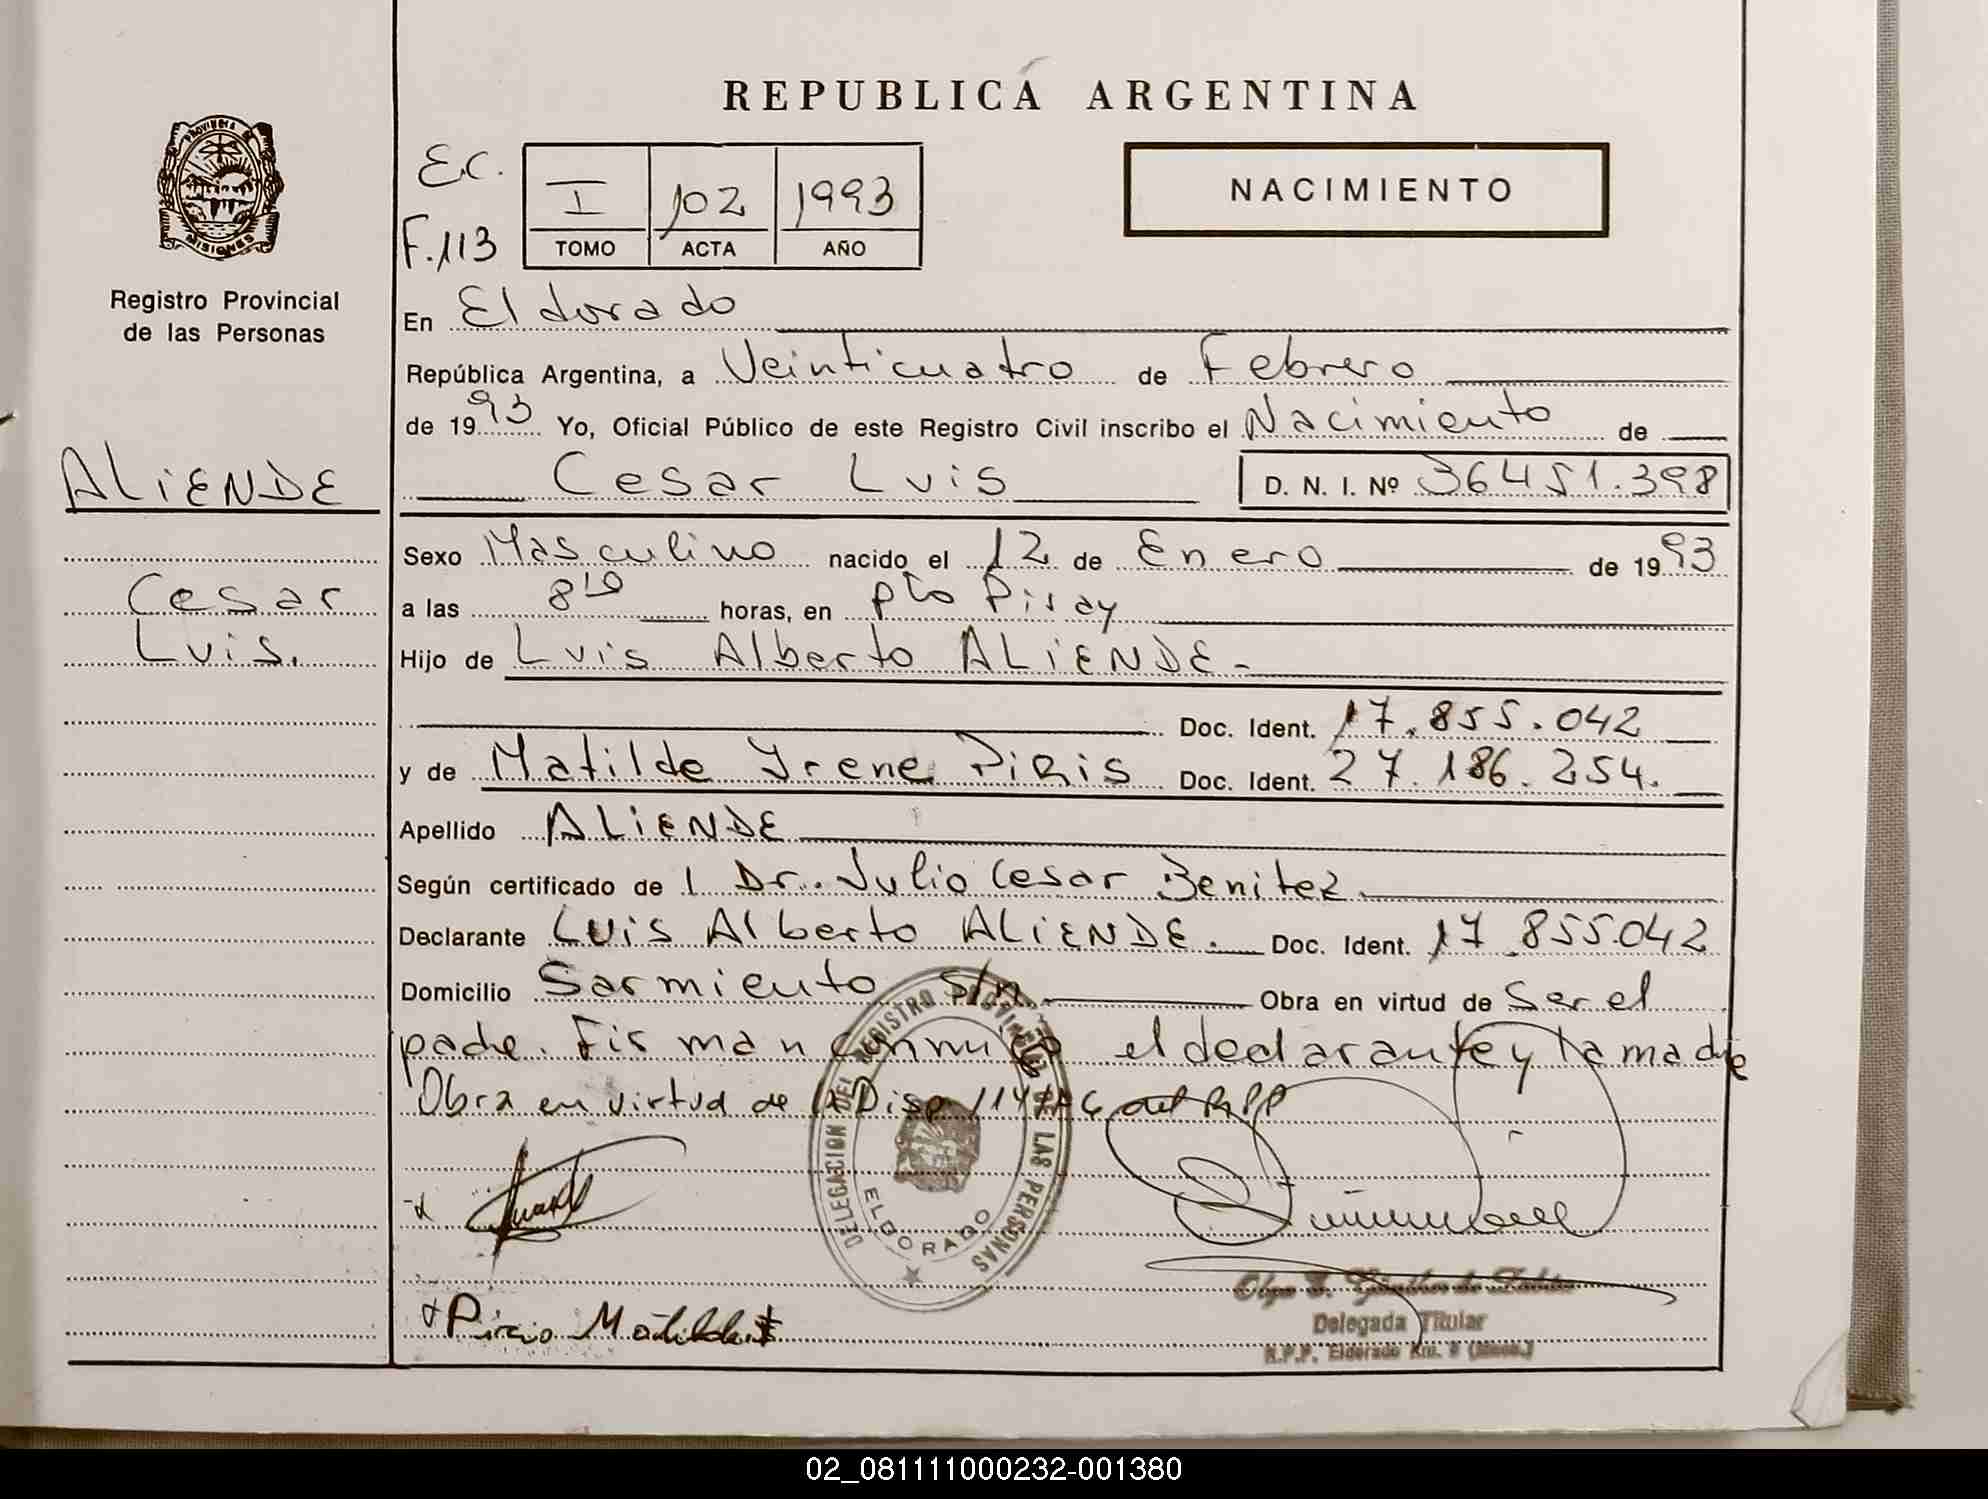 REPUBLICA ARGENTINA
PROVINCIA DE
MISIONES
Registro Provincial
de las Personas
E.C.
F.113
I 102 1993
TOMO ACTA AÑO
NACIMIENTO
En Eldorado
República Argentina, a Veinticuatro de Febrero
de 1993 Yo, Oficial Público de este Registro Civil inscribo el Nacimiento de
ALiENDE
Cesar Luis D. N. I. Nº 36451.398
Sexo Masculino nacido el 12 de Enero de 1993
Cesar
Luis.
a las 8 10 horas, en pto Piray
Hijo de Luis Alberto ALiENDE-
Doc. Ident. 17.855.042
y de Matilde Irene PiRis Doc. Ident. 27.186.254.
Apellido ALiENDE
Según certificado de l Dr. Julio Cesar Benitez
Declarante Luis Alberto ALiENDE. Doc. Ident. 17 855.042
Domicilio Sarmiento s/n. Obra en virtud de ser el
padre. Firman el declarante y la madre
Obra en virtud de la Disp del RPP
DELEGACION DEL REGISTRO PROVINCIAL DE LAS PERSONAS
ELDORADO
Delegada Titular
R.P.P. Eldorado Km. 9 (Mnes.)
02_081111000232-001380